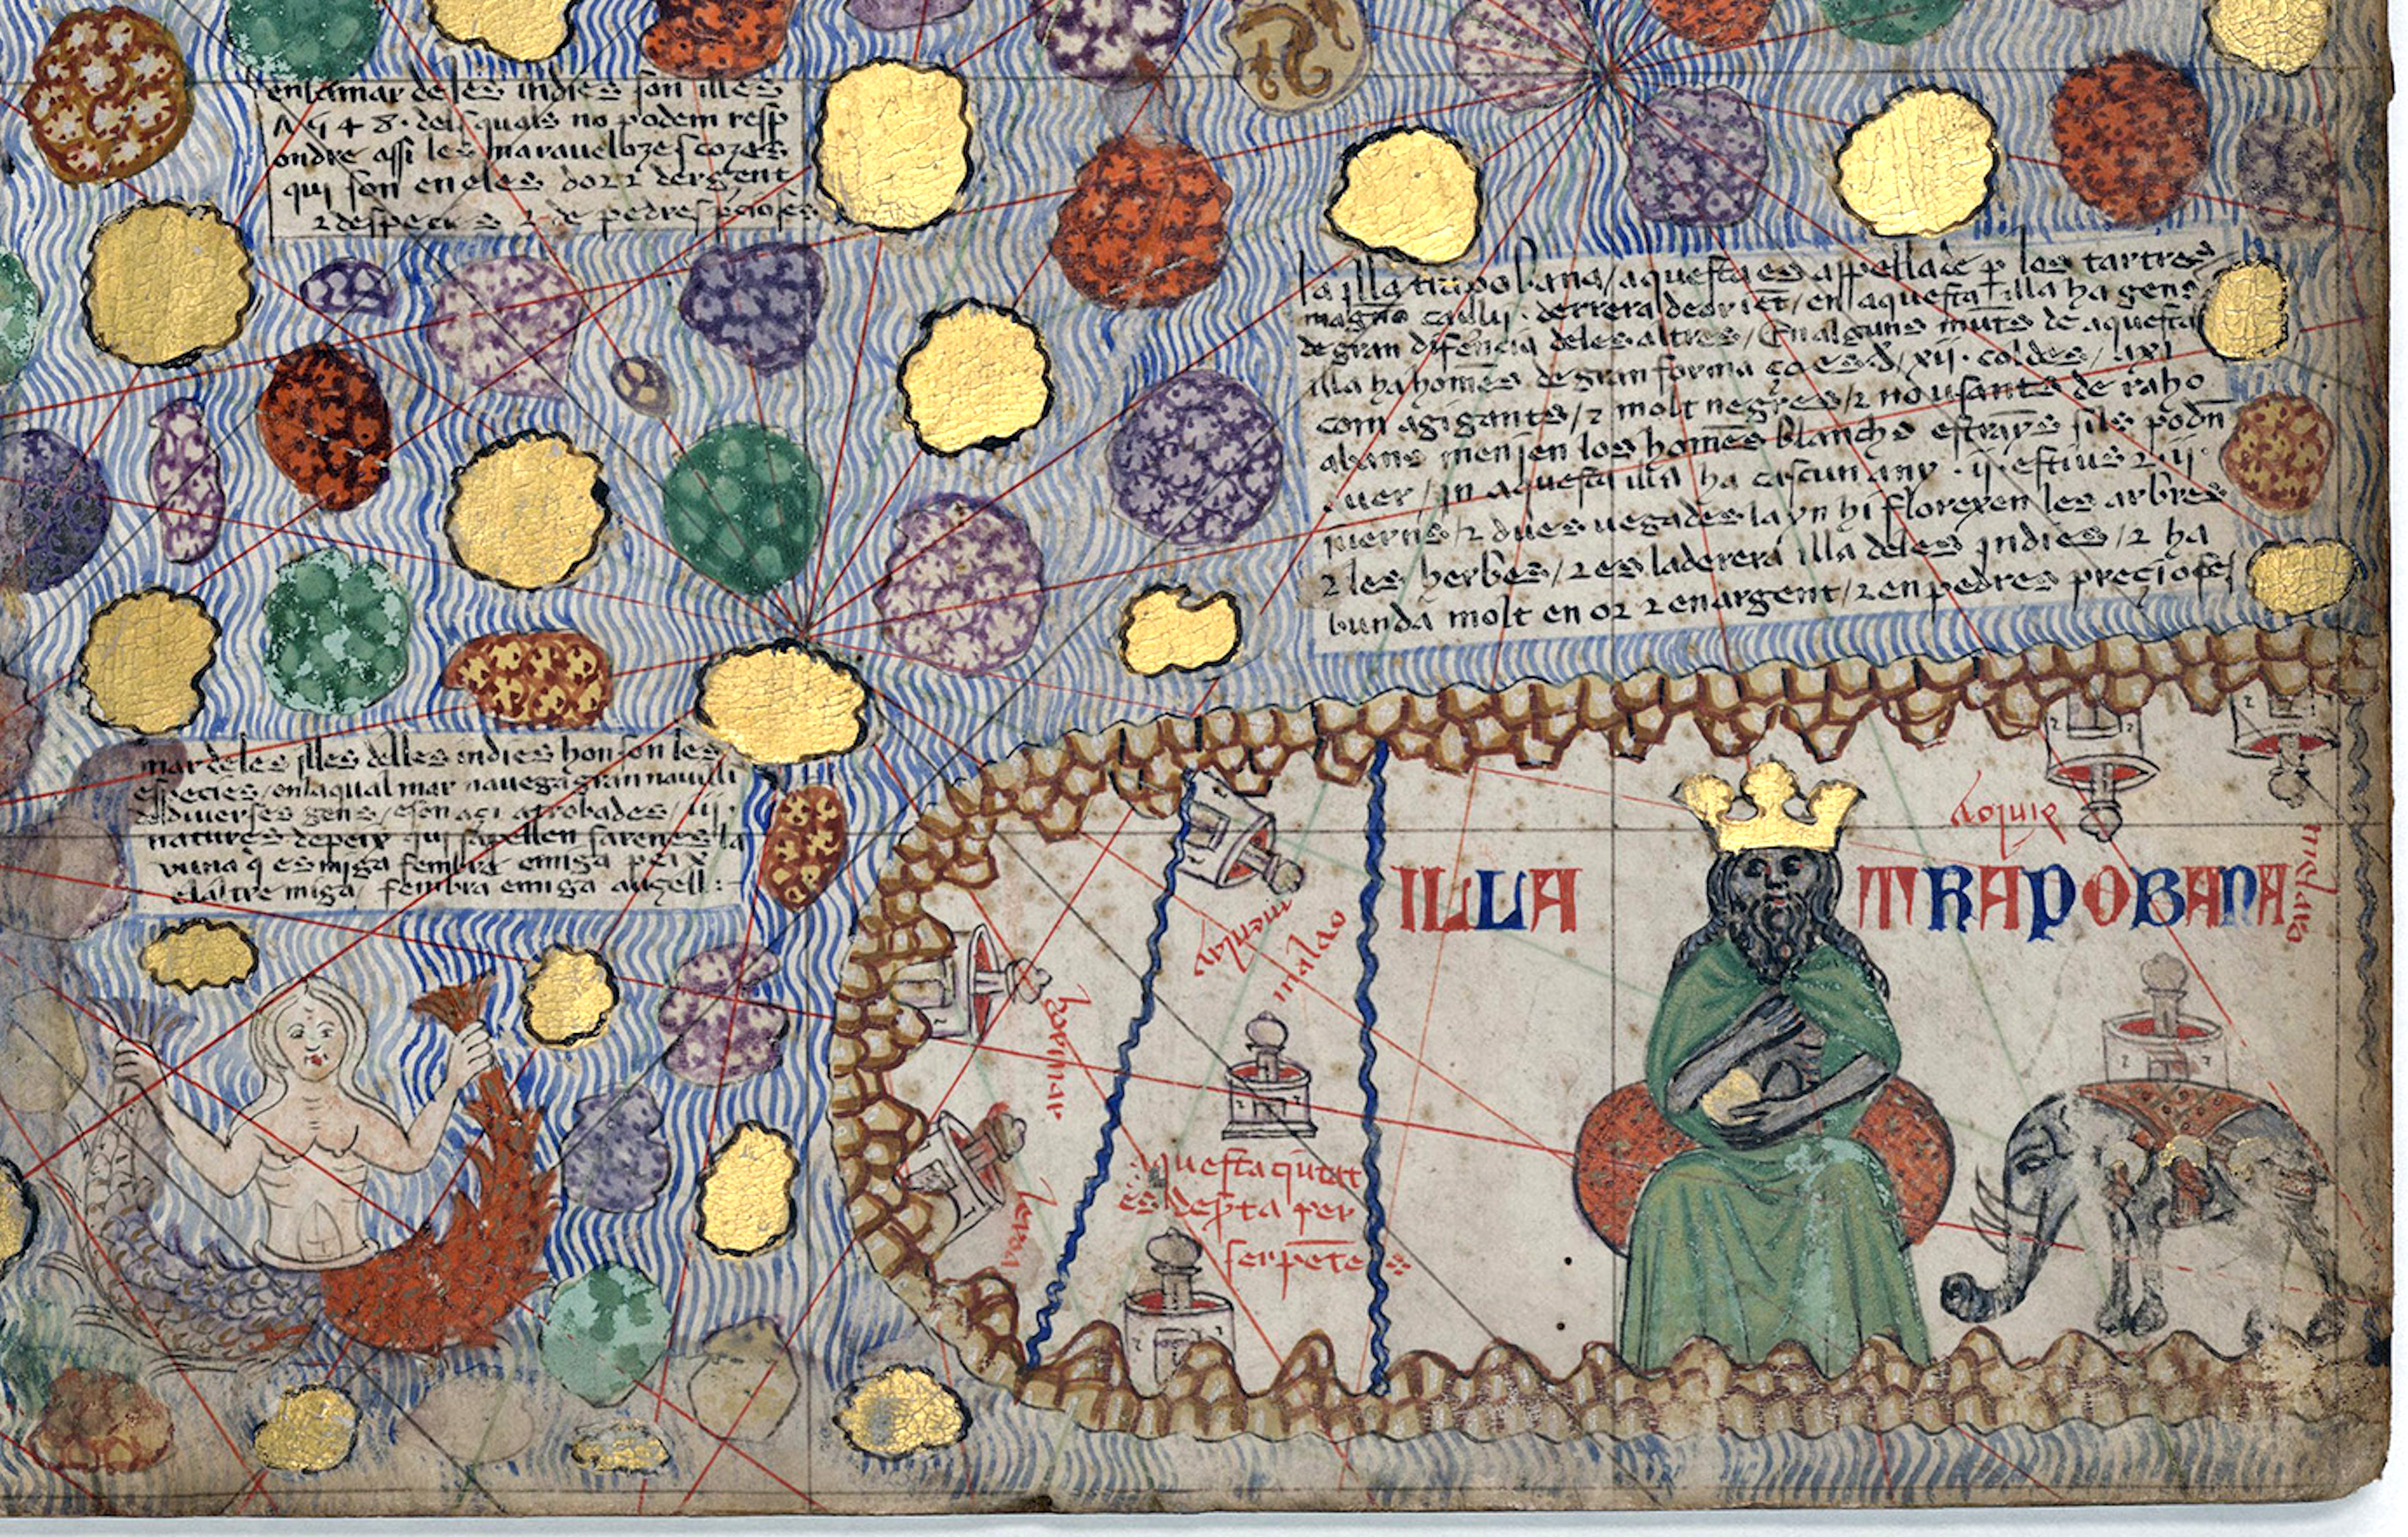 en la mar de les indies son illes
7548. dels quals no podem resp
ondre assi les maravelozes cozes
qui son en eles dor 2 dergent
2 despecies 2 de pedres precioses
la illa trapobana / aquesta es appellade p los tartres
magno caulij. derrera de orient / en aquesta illa ha gens
de gran diferencia deles altres / En alguns munts de aquesta
illa ha homens de gran forma ço es d xij. coldes / axi
com agigants / 2 molt negres / 2 no usants de raho
abans menjen los homens blanchs estrayns sils podn
auer / in aquesta illa ha cascun any .ij. estius 2 .ij.
juerns / 2 dues uegades layn hi florexen les arbres
2 les herbes / 2 es la derera illa deles indies / 2 ha
bunda molt en or 2 en argent / 2 en pedres precioses
mar deles illes delles indies hon son les
especies / en la qual mar navega gran navili
de diverses gens / e son aci atrobades / iij.
natures de peix qui sapellen sarenes la
vuna q es miga fembra e miga peix
e laltre miga / fembra e miga augell :
ILLA TRAPOBANA
malao
menlay
hormar
leroa
aquesta ciutat
es depta per
serpēte